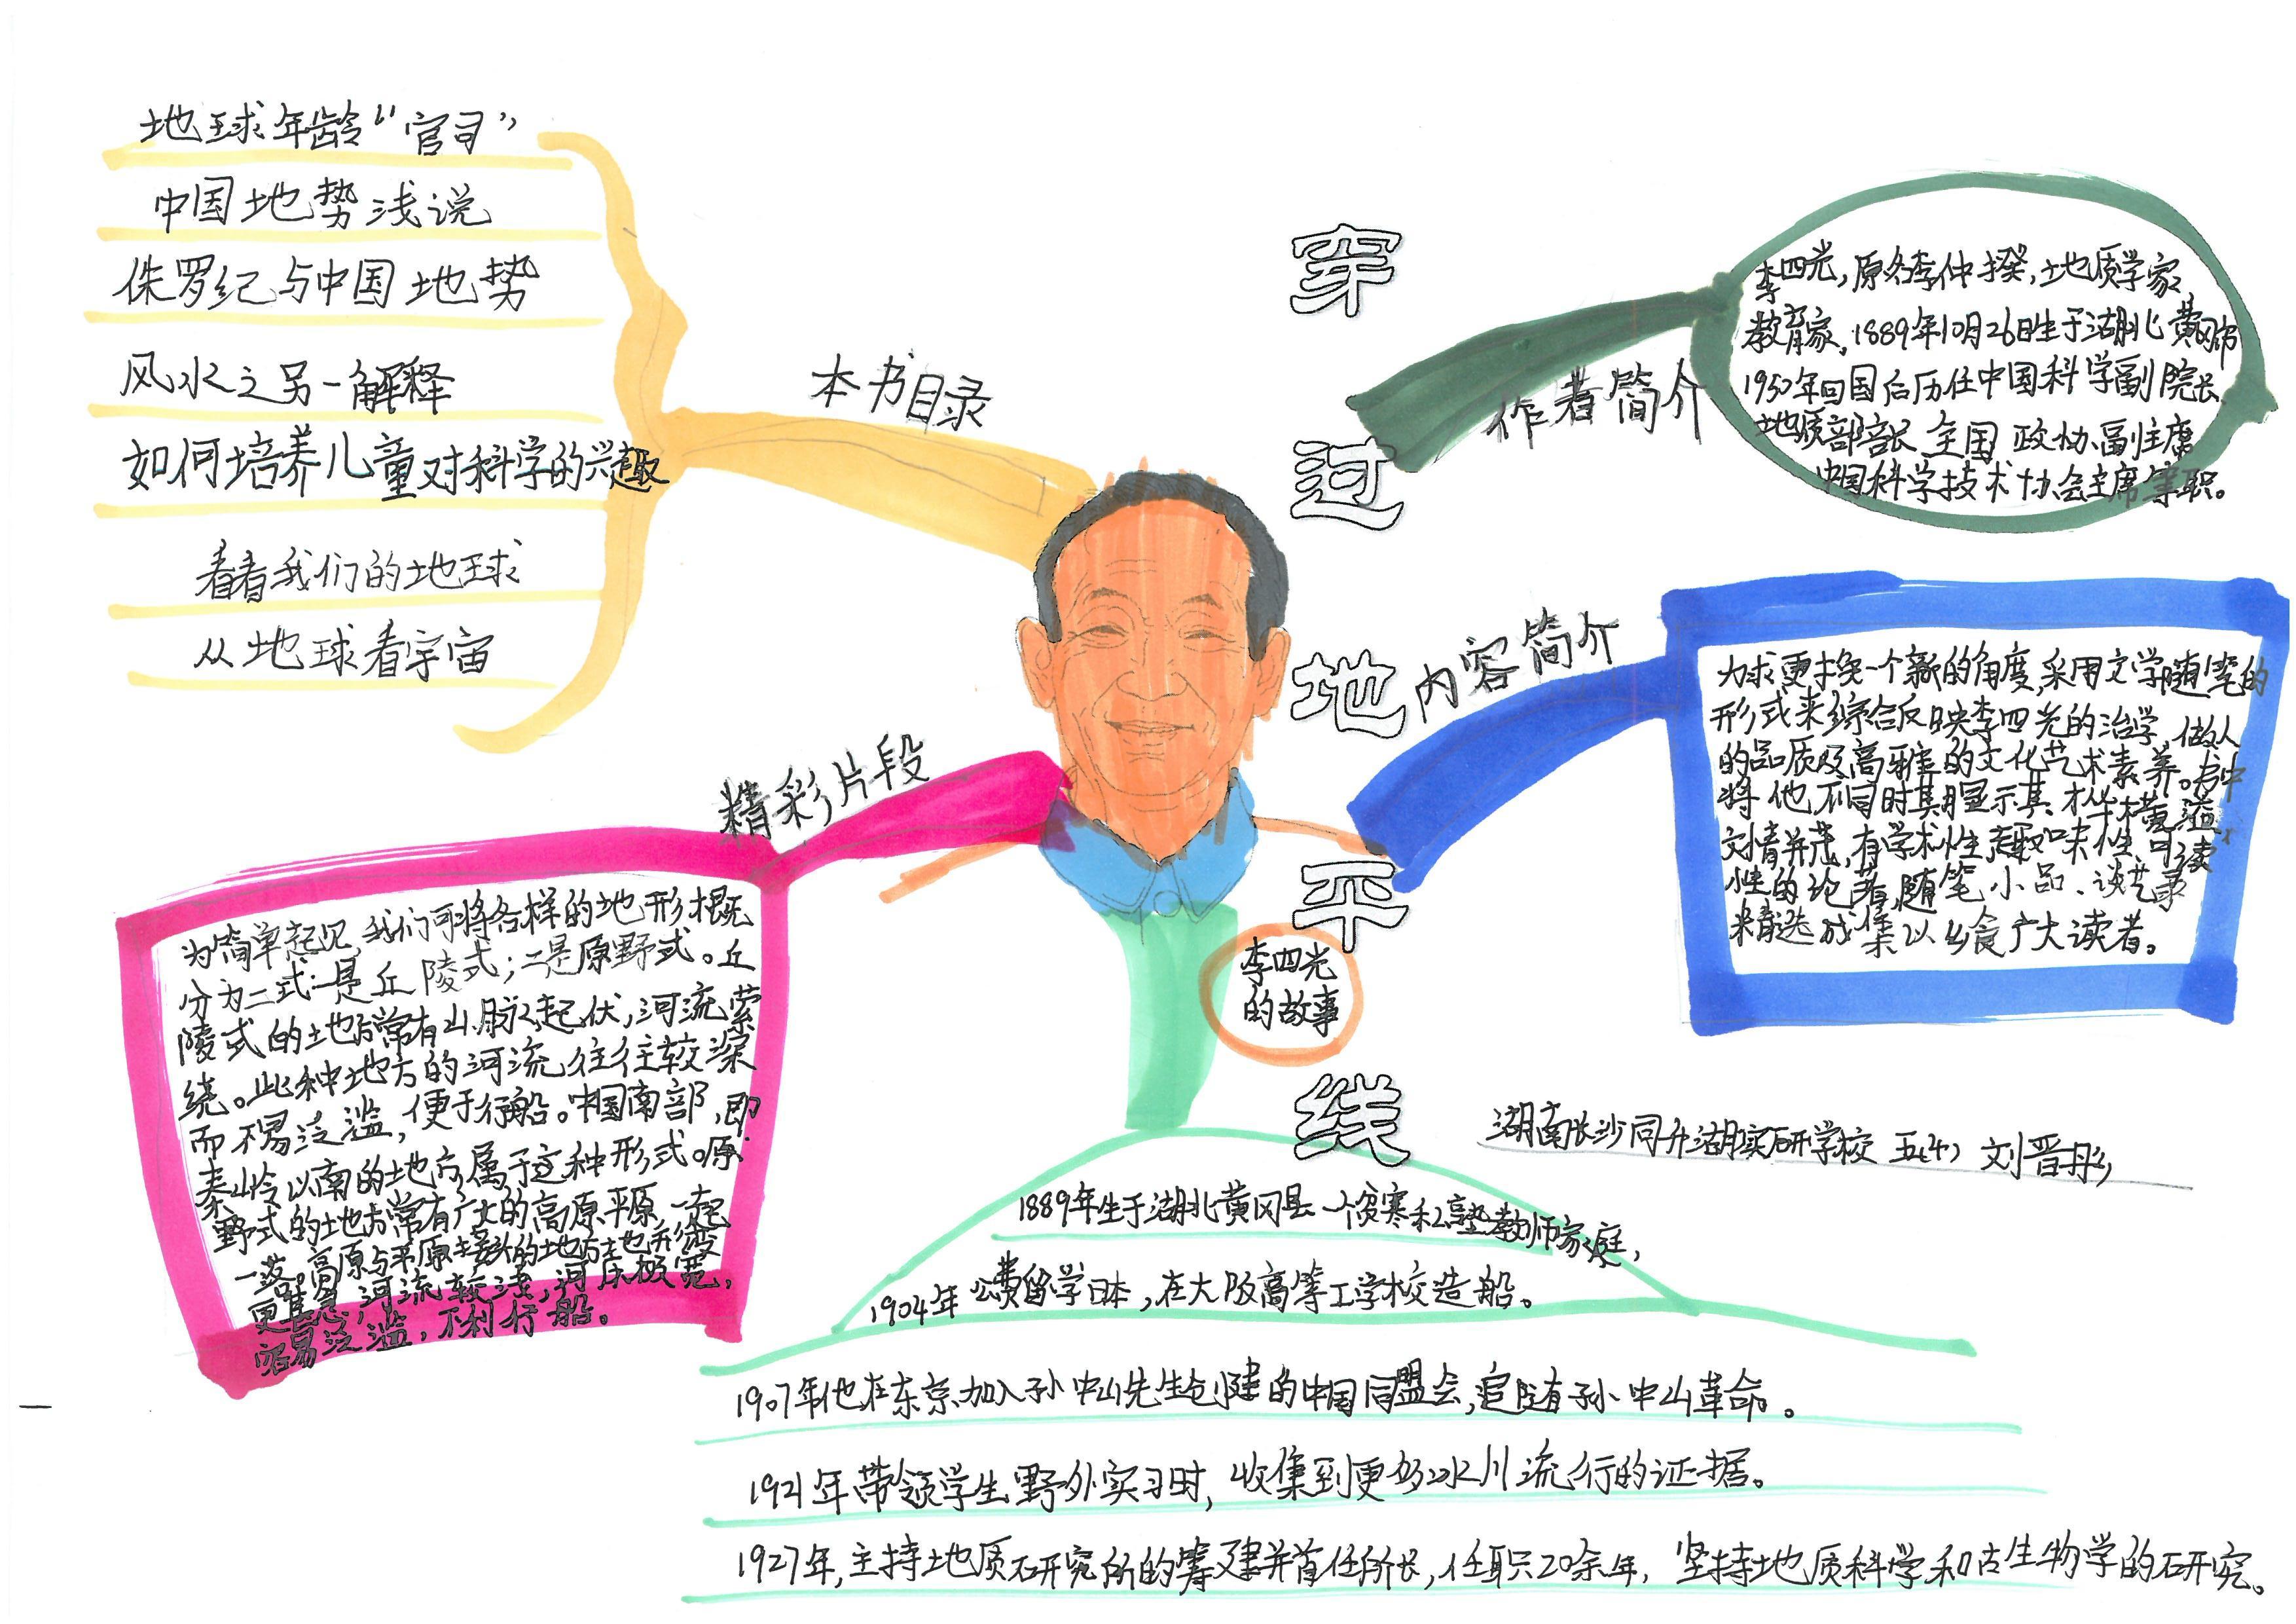 穿过地平线
本书目录
地球年龄“官司”
中国地势浅说
侏罗纪与中国地势
风水之另一解释
如何培养儿童对科学的兴趣
看看我们的地球
从地球看宇宙
作者简介
李四光,原名李仲揆,地质学家,
教育家,1889年10月26日生于湖北黄冈市
1950年回国后历任中国科学副院长、
地质部部长 全国政协副主席
中国科学技术协会主席等职。
内容简介
力求更换一个新的角度,采用文学随笔的
形式来综合反映李四光的治学、做人
的品质及高雅的文化艺术素养。书中
将他不同时期显示其才华横溢、
文情并茂,有学术性、趣味性、可读
性的论著、随笔、小品、谈艺录
精选成集以飨广大读者。
精彩片段
为简单起见,我们可将各样的地形概
分为二式:一是丘陵式;二是原野式。丘
陵式的地方常有山脉起伏,河流萦
绕。此种地方的河流往往较深
而不易泛滥,便于行船。中国南部,即
秦岭以南的地方属于这种形式。原
野式的地方常有广大的高原平原,一起
一落。高原与平原接头的地方
河流较浅,河床极宽,
容易泛滥,不利行船。
李四光
的故事
1889年生于湖北黄冈县一个贫寒私塾教师家庭,
1904年公费留学日本,在大阪高等工学校造船。
1907年他在东京加入孙中山先生创建的中国同盟会,追随孙中山革命。
1921年带领学生野外实习时,收集到更多冰川流行的证据。
1927年,主持地质研究所的筹建并首任所长,任职20余年,坚持地质科学和古生物学的研究。
湖南长沙同升湖实研学校 五(4) 刘晋彤